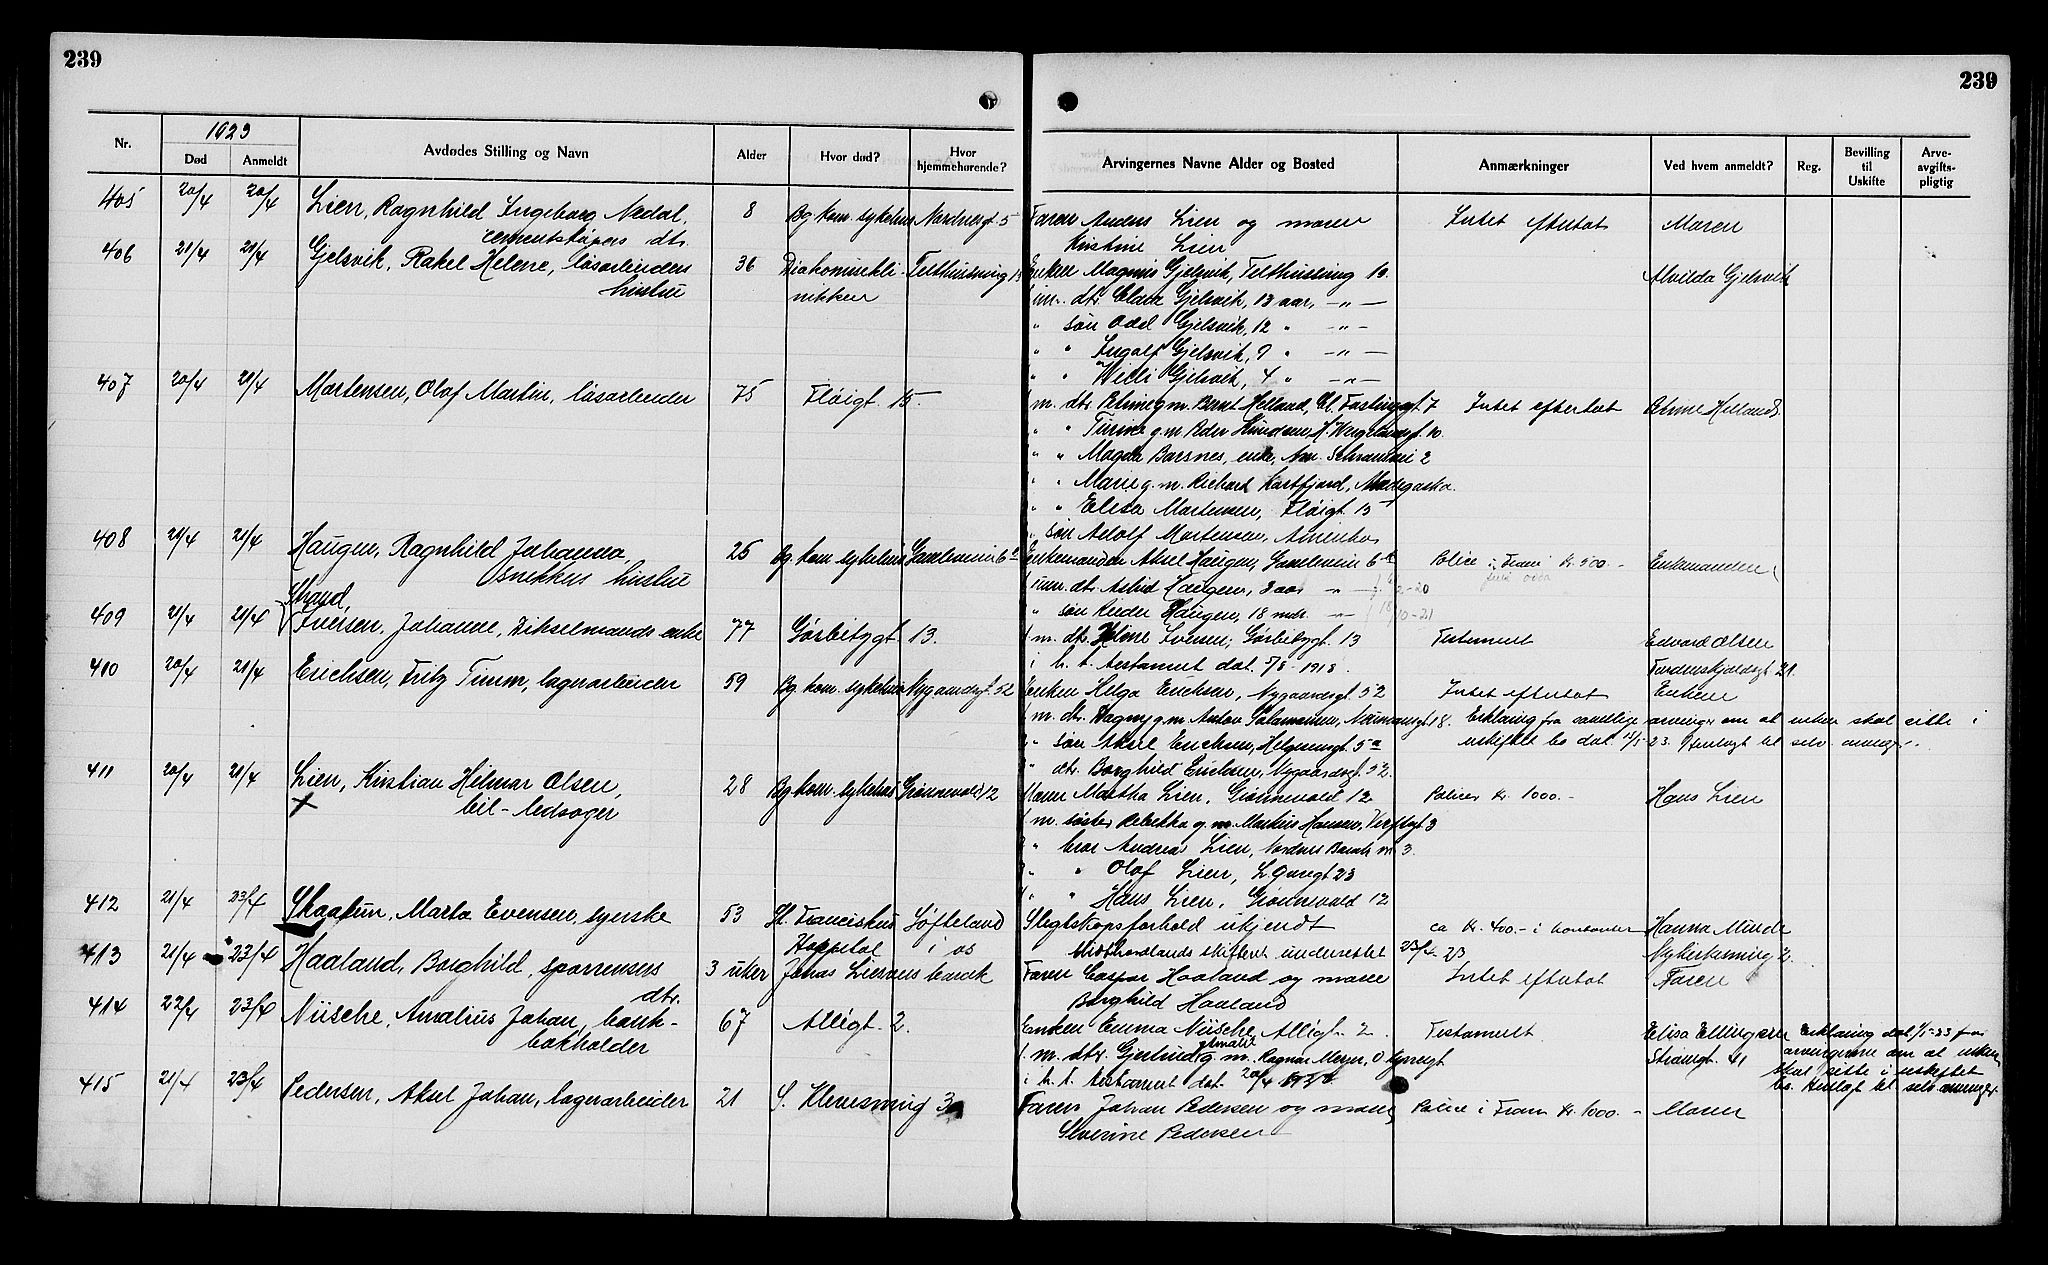 239
239
1923
Nr.
Død
Anmeldt
Avdødes Stilling og Navn
Alder
Hvor død?
Hvor hjemmehørende?
Arvingernes Navne Alder og Bosted
Anmærkninger
Ved hvem anmeldt?
Reg.
Bevilling til Uskifte
Arve-avgifts-pligtig
405 20/4 20/4 Lien, Ragnhild Ingeborg Nedal, 8 Bg kom. sykehus Nordnesgt. 5 Faren Anders Lien og moren Intet efterlat Moren
cementstøpers dtr. Kristine Lien
406 21/4 21/4 Gjelsvik, Rakel Helene, løsarbeiders 36 Diakonissekli- Telthussmug Enkem. Magnus Gjelsvik, Telthussmug 10. Alvilda Gjelsvik
hustru nikken um. dtr. Clara Gjelsvik, 13 aar, -"-
" søn Odd Gjelsvik, 12 " -"-
" " Ingolf Gjelsvik, 9 " -"-
" " Willi Gjelsvik, 4 " -"-
407 20/4 21/4 Martensen, Olaf Martin, løsarbeider 75 Fløigt. 15. m. dtr. Eline g.m. Bernt Helland, Cl. Fastingsgt. 7 Intet efterlat Eline Helland
" " g.m. Peder Knudsen, H. Wergelandsgt. 10.
" " Magda Barsnes, enke, 2
" " Marie g.m. Richard
" " Elisa Martensen, Fløigt. 15
" søn Adolf Martensen, Amerika
408 21/4 21/4 Haugen, Ragnhild Johanna, 25 Bg. kom. sykehus 6a Enkemanden Aksel Haugen, 6a Police i Fram kr. 500.- Enkemanden
snekkers hustru um. dtr. Astrid Haugen, 3 aar -"- 2-20
Strand, " søn Haugen, 18 mdr. -"- 10-21
409 21/4 21/4 Iversen, Johanne, enke 77 13. m. dtr. Iversen, 13 Testament Edvard Olsen
i h. t. testament dat. 5/8-1918. Tordenskjoldsgt. 21.
410 20/4 21/4 Erichsen, Fritz Timm, lagerarbeider 59 Bg. kom. sykehus Nygaardsgt. 52 Enken Helga Erichsen, Nygaardsgt. 52 Intet efterlat Enken
m. dtr. Dagny g.m. Anton Salamonsen, Neumannsgt. 18. Erklæring fra samtlige arvinger om at enken skal sitte i
" søn Aksel Erichsen, Helgesensgt. 5a uskiftet bo dat. 15/5-23. Henlagt til selv.
" dtr. Borghild Erichsen, Nygaardsgt. 52.
411 20/4 21/4 Lien, Kristian Hilmar Olsen, 28 Bg. kom. sykehus Grønnevold 12 Moren Martha Lien, Grønnevold 12 Police kr. 1000.- Hans Lien
bil-ledsager m. søster Rebekka g.m. Markus Hansen, Verftsgt. 3
" bror Andreas Lien, Nordnes Barak nr. 3.
" " Olaf Lien, 23
" " Hans Lien, Grønnevold 12
412 21/4 23/4 Skaatun, Marta Evensen, syerske 53 St. Franciskus Søfteland Slegtskapsforhold ukjendt ca kr. 400.- i kontanter Hanna Minde
Hospital i Os Midthordlands skifteret underrettet 23/4-23 2.
413 21/4 23/4 Haaland, Borghild, 3 uker Jonas barak Faren Caspar Haaland og moren Intet efterlat Faren
dtr. Borghild Haaland
414 22/4 23/4 Nitsche, Amalius Johan, bank- 67 Alleigt. 2. Enken Emma Nitsche, Alleigt. 2. Testament. Elisa Ellingsen Erklæring dat. 1/5-23 fra
bokholder m. dtr. Gjertrud g.m. Ragnar Meyer, Strangt. 41 arvingerne om at enken
i h. t. testament dat. 20/4 skal sitte i uskiftet
bo. Henlagt til selv.
415 21/4 23/4 Pedersen, Aksel Johan, lagerarbeider 21 S. 3 Faren Johan Pedersen og moren Police i Fram kr. 1000.- Moren
Severine Pedersen